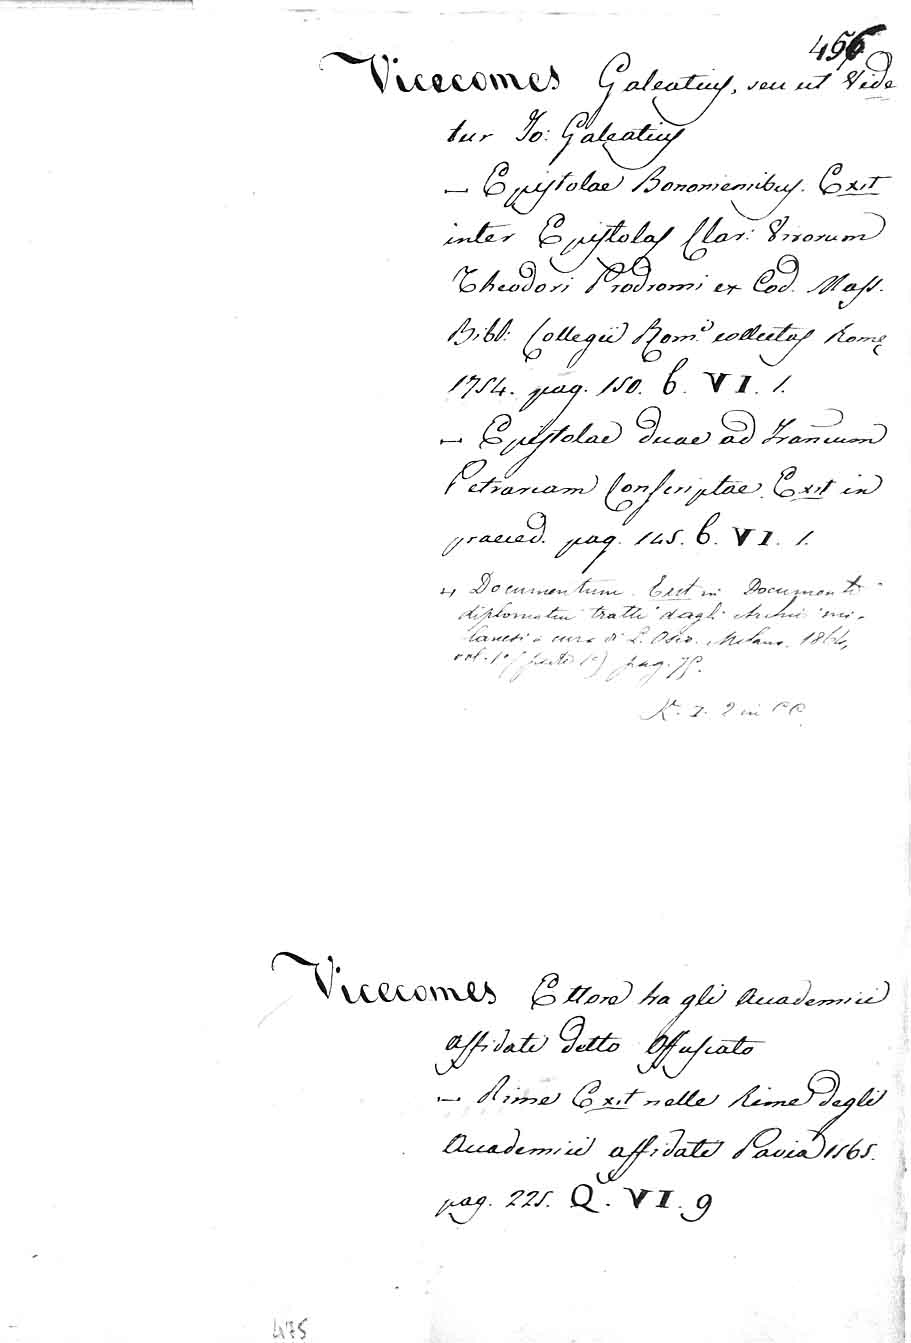 456
Vicecomes Galeatius, seu ut Vide
tur Jo: Galeatius
— Epistolae Bononiensibus. Exit
inter Epistolas Clar: Virorum
Theodori Prodromi ex Cod. Mass.
Bibl: Collegii Rom.i collectas Rome
1754. pag. 150. b. VI. 1.
— Epistolae duae ad Francum
Petrarcam Conscriptae. Exit in
praeced. pag. 145. b. VI. 1.
— Documentum. Exit in Documenti
diplomatici tratti dagli Archivi mi-
lanesi a cura di L. Osio. Milano. 1864,
vol. 1° (parte 1a) pag. 75.
K. I. 2 in CC.
Vicecomes Ettore tra gli Accademici
affidati detto Offuscato
— Rime Exit nelle Rime degli
Accademici affidati Pavia 1565.
pag. 225. Q. VI. 9
475